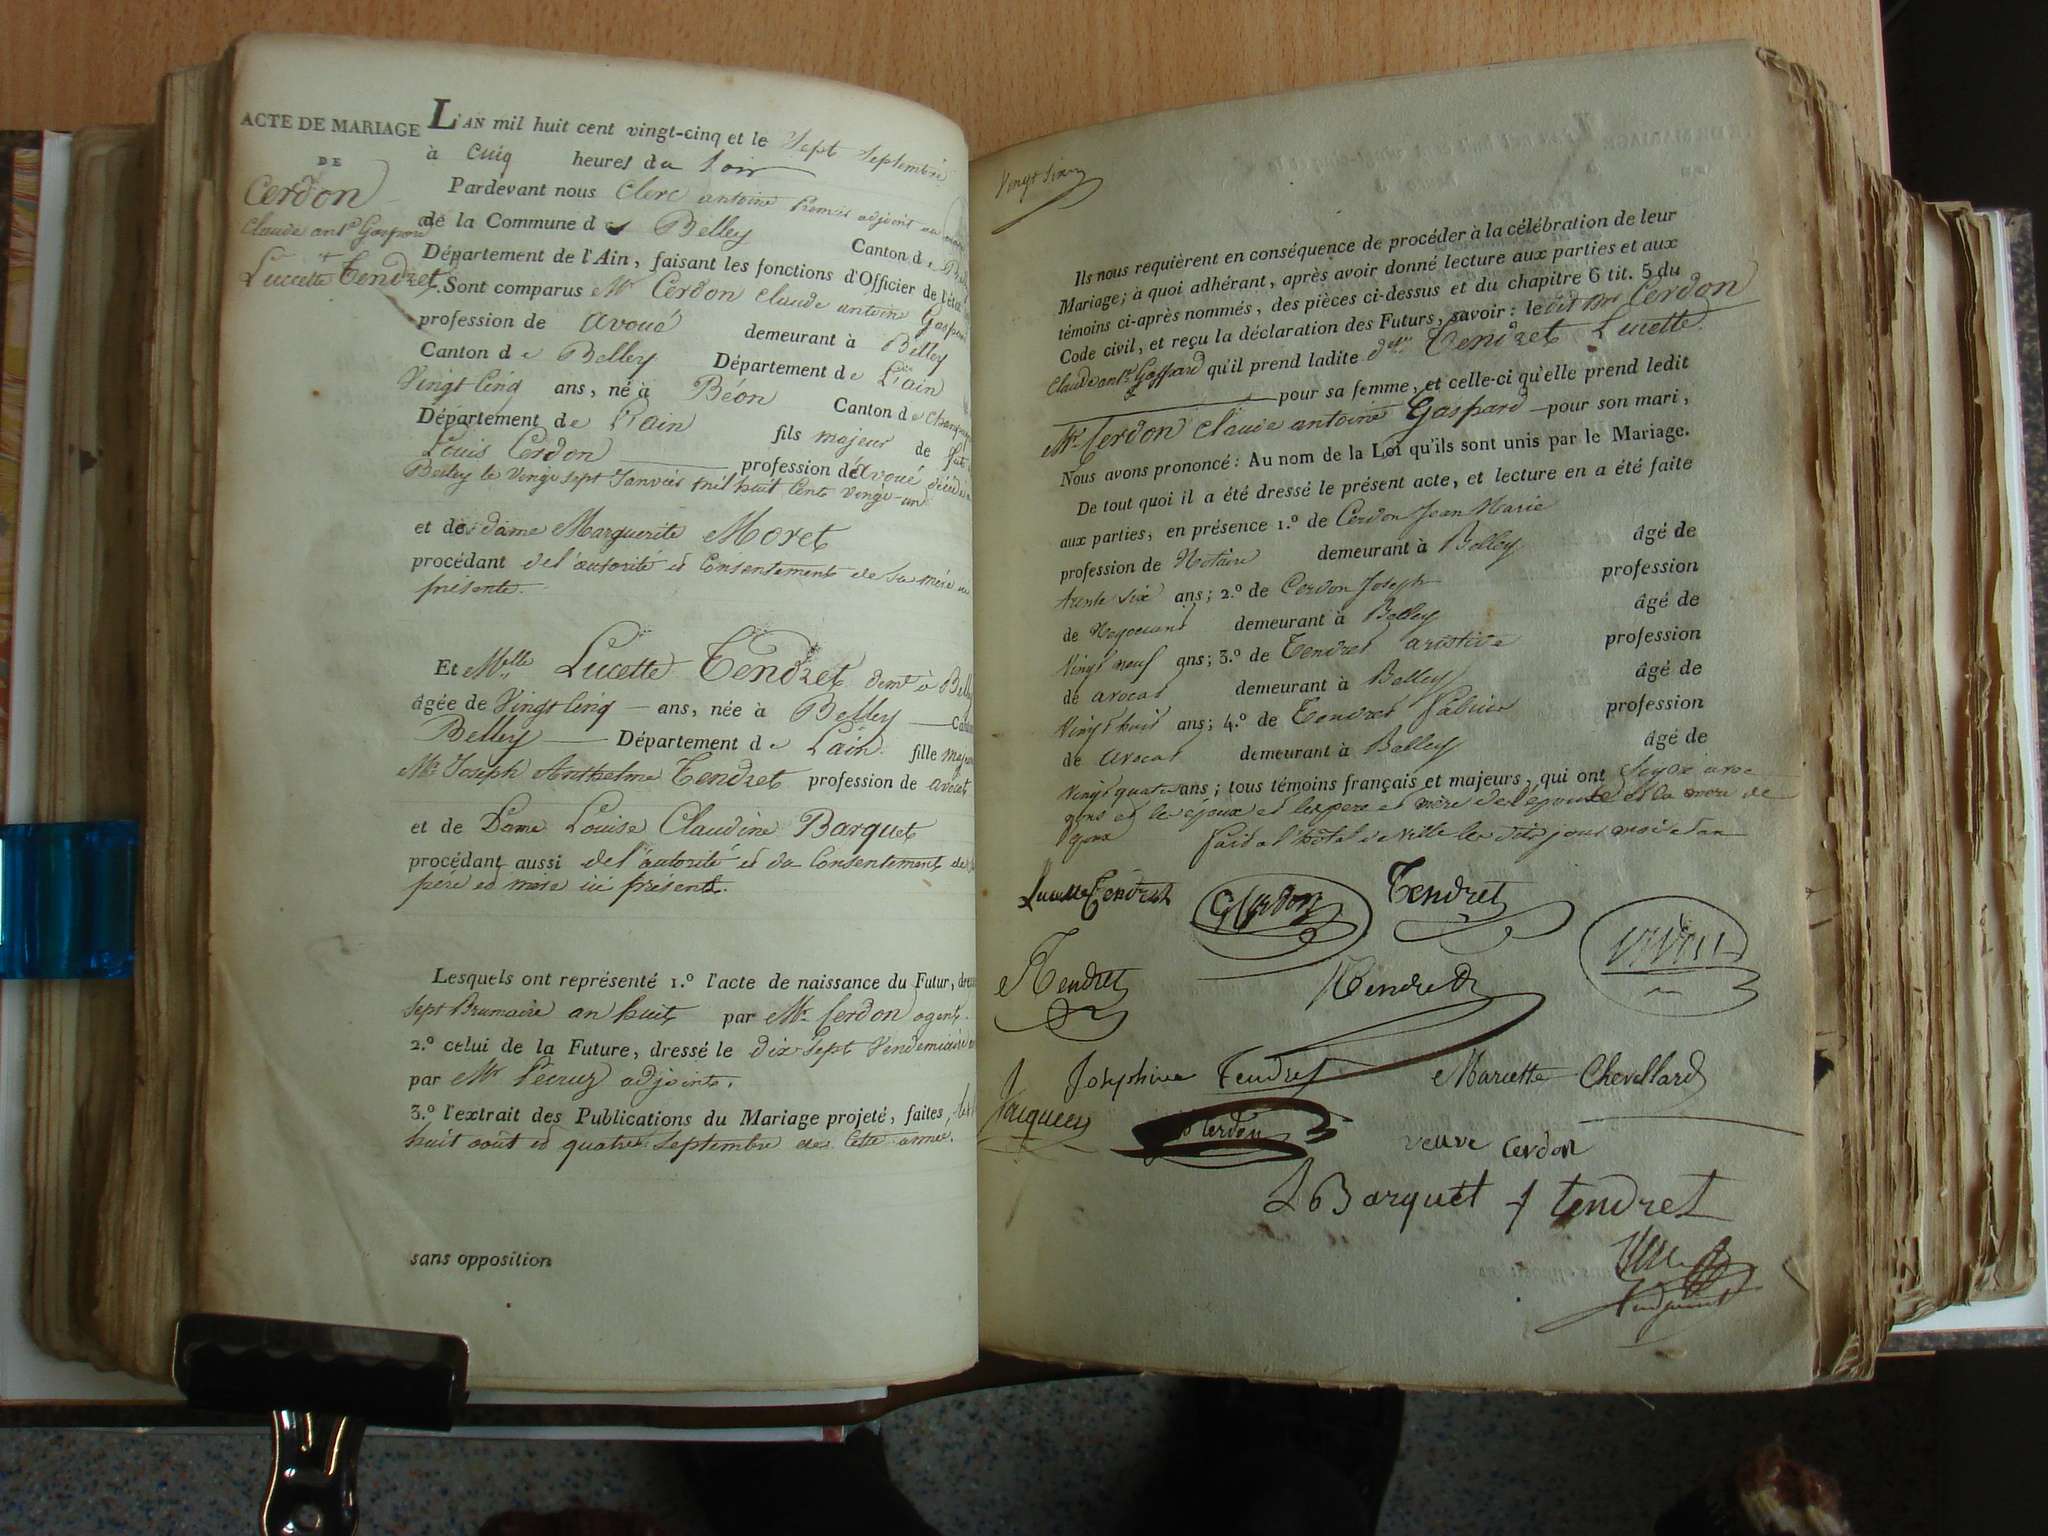 ACTE DE MARIAGE
DE
Cerdon
Claude ant.e Gaspard
et
Lucette Tendret
L'AN mil huit cent vingt-cinq et le sept septembre
à cinq heures du soir
Pardevant nous Clerc antoine Premier adjoint au maire
de la Commune de Belley Canton de
Département de l'Ain, faisant les fonctions d'Officier de l'état
Sont comparus Mr Cerdon Claude antoine Gaspard
profession de avoué demeurant à Belley
Canton de Belley Département de L'ain
Vingt Cinq ans, né à Béon Canton de
Département de L'ain fils majeur de feu
Louis Cerdon profession d'avoué décédé à
Belley le vingt sept Janvier mil huit Cent vingt-un
et de dame Marguerite Moret
procédant de l'autorité et Consentement de sa mère ici
présente.
Et Melle Lucette Tendret demt à Belley
âgée de Vingt Cinq ans, née à Belley
Belley Département de L'ain fille
Mr Joseph Anthelme Tendret profession de avocat
et de Dame Louise Claudine Barquet
procédant aussi de l'autorité et du Consentement de
père et mère ici présents.
Lesquels ont représenté 1.º l'acte de naissance du Futur,
sept Brumaire an huit par Mr Cerdon agent
2.º celui de la Future, dressé le dix sept Vendemiaire
par Mr Pecruz adjoint.
3.º l'extrait des Publications du Mariage projeté, faites,
huit août et quatre Septembre de Cette année.
sans opposition
Vingt six
Ils nous requièrent en conséquence de procéder à la célébration de leur
Mariage; à quoi adhérant, après avoir donné lecture aux parties et aux
témoins ci-après nommés, des pièces ci-dessus et du chapitre 6 tit. 5 du
Code civil, et reçu la déclaration des Futurs, savoir: ledit Mr Cerdon
Claude ant.e Gaspard qu'il prend ladite dlle Tendret Lucette
pour sa femme, et celle-ci qu'elle prend ledit
Mr Cerdon Claude antoine Gaspard pour son mari,
Nous avons prononcé: Au nom de la Loi qu'ils sont unis par le Mariage.
De tout quoi il a été dressé le présent acte, et lecture en a été faite
aux parties, en présence 1.º de Cerdon Jean Marie
profession de Notaire demeurant à Belley âgé de
trente six ans; 2.º de Cerdon Joseph profession
de Negociant demeurant à Belley âgé de
Vingt neuf ans; 3.º de Tendret aristide profession
de avocat demeurant à Belley âgé de
Vingt huit ans; 4.º de Tendret fabien profession
de avocat demeurant à Belley âgé de
Vingt quatre ans; tous témoins français et majeurs, qui ont signé avec
nous et les époux et les pere et mère de l'épouse et la mère de
l'époux fait a l'hôtel de Ville les dits jour mois et an
Lucette Tendret G Cerdon Tendret
Cerdon
A Tendret Tendret
Josephine Tendret Mariette Chevillard
Jacques Cerdon veuve Cerdon
L Barquet f tendret